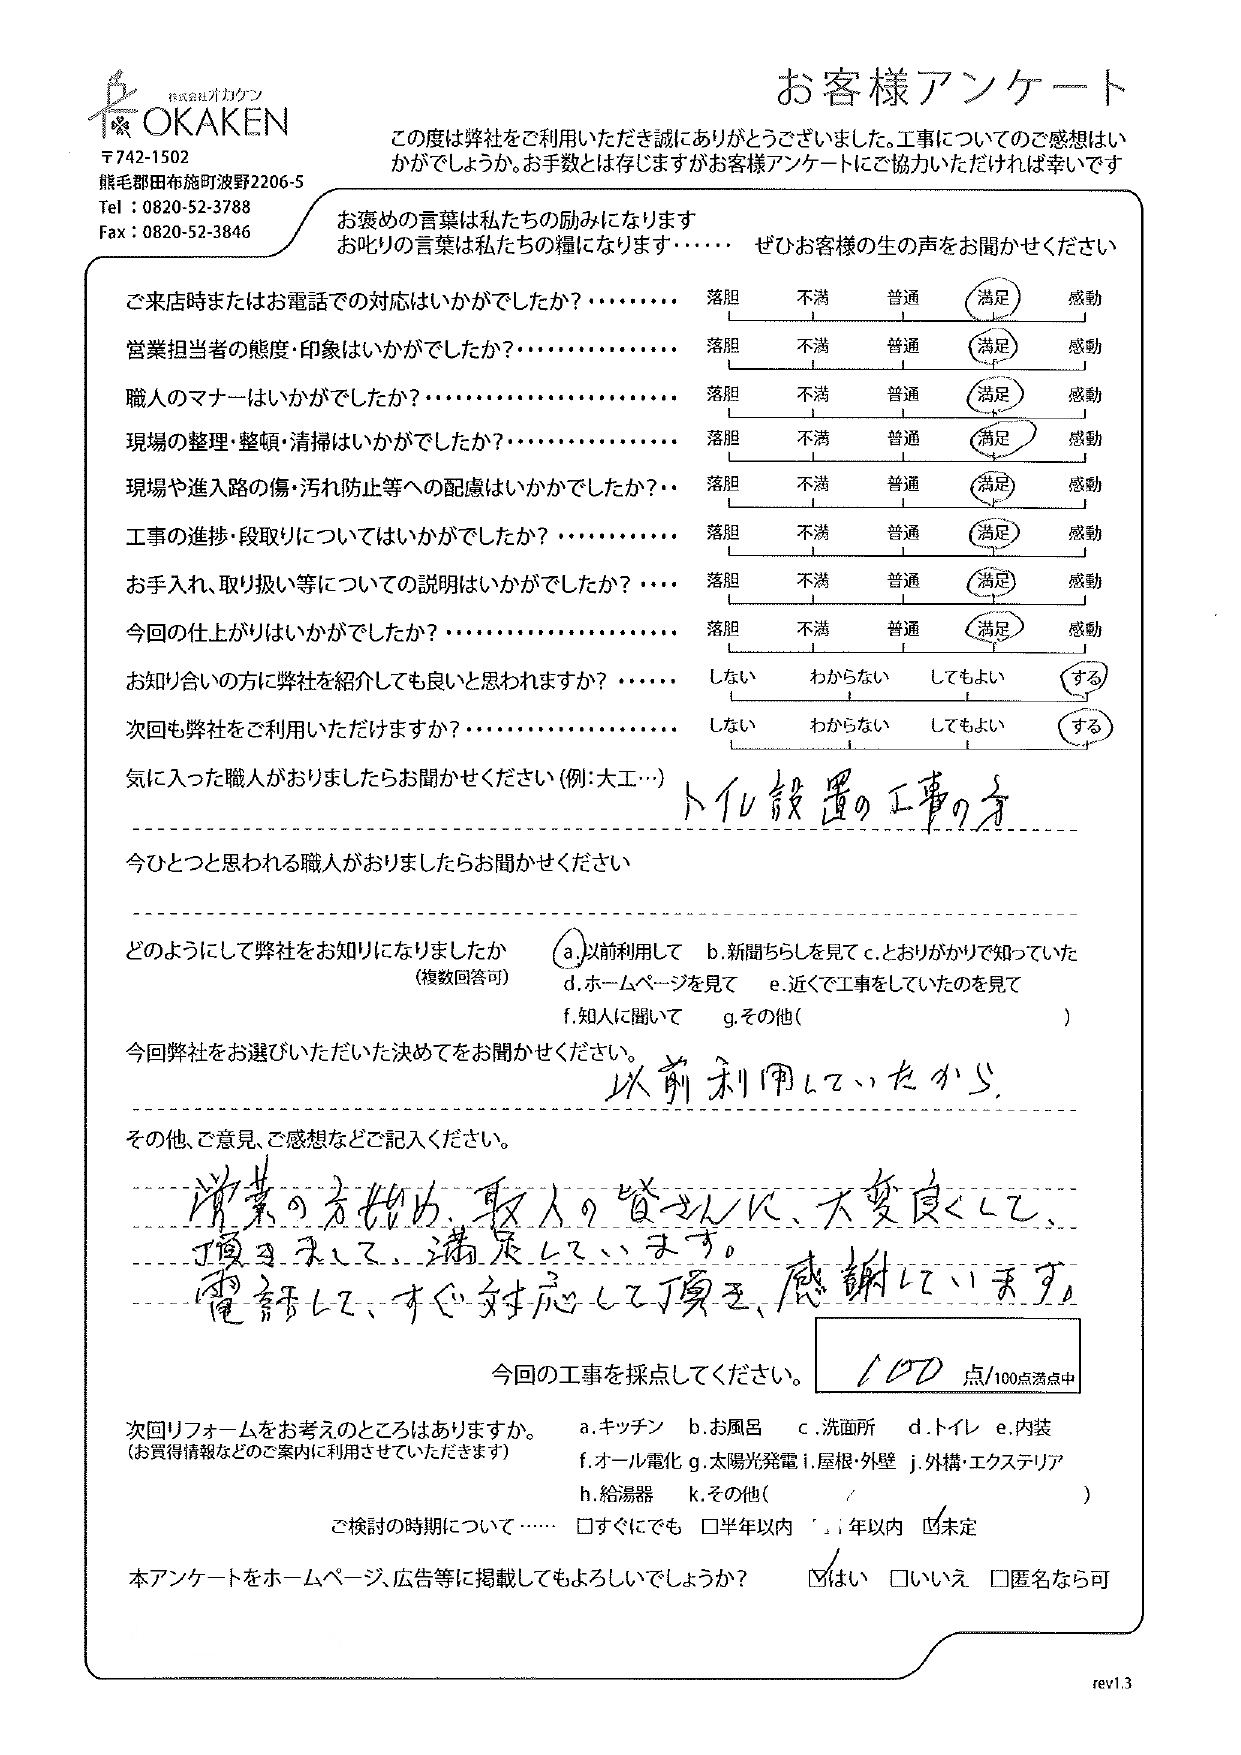 お客様アンケート
株式会社オカケン
OKAKEN
〒742-1502
熊毛郡田布施町波野2206-5
Tel：0820-52-3788
Fax：0820-52-3846
この度は弊社をご利用いただき誠にありがとうございました。工事についてのご感想はい
かがでしょうか。お手数とは存じますがお客様アンケートにご協力いただければ幸いです
お褒めの言葉は私たちの励みになります
お叱りの言葉は私たちの糧になります‥‥‥ ぜひお客様の生の声をお聞かせください
ご来店時またはお電話での対応はいかがでしたか?‥‥‥‥‥ 落胆 不満 普通 満足 感動
営業担当者の態度・印象はいかがでしたか?‥‥‥‥‥‥‥‥ 落胆 不満 普通 満足 感動
職人のマナーはいかがでしたか?‥‥‥‥‥‥‥‥‥‥‥‥‥ 落胆 不満 普通 満足 感動
現場の整理・整頓・清掃はいかがでしたか?‥‥‥‥‥‥‥‥‥ 落胆 不満 普通 満足 感動
現場や進入路の傷・汚れ防止等への配慮はいかかでしたか?‥ 落胆 不満 普通 満足 感動
工事の進捗・段取りについてはいかがでしたか?‥‥‥‥‥‥ 落胆 不満 普通 満足 感動
お手入れ、取り扱い等についての説明はいかがでしたか?‥‥ 落胆 不満 普通 満足 感動
今回の仕上がりはいかがでしたか?‥‥‥‥‥‥‥‥‥‥‥‥ 落胆 不満 普通 満足 感動
お知り合いの方に弊社を紹介しても良いと思われますか?‥‥‥ しない わからない してもよい する
次回も弊社をご利用いただけますか?‥‥‥‥‥‥‥‥‥‥‥ しない わからない してもよい する
気に入った職人がおりましたらお聞かせください(例：大工…) トイレ設置の工事の方
今ひとつと思われる職人がおりましたらお聞かせください
どのようにして弊社をお知りになりましたか a.以前利用して b.新聞ちらしを見て c.とおりがかりで知っていた
(複数回答可) d.ホームページを見て e.近くで工事をしていたのを見て
f.知人に聞いて g.その他( )
今回弊社をお選びいただいた決めてをお聞かせください。
以前利用していたから.
その他、ご意見、ご感想などご記入ください。
営業の方始め、取人の皆さんに、大変良くして、
頂きまして、満足しています。
電話して、すぐ対応して頂き、感謝しています。
今回の工事を採点してください。 100 点/100点満点中
次回リフォームをお考えのところはありますか。 a.キッチン b.お風呂 c.洗面所 d.トイレ e.内装
(お買得情報などのご案内に利用させていただきます) f.オール電化 g.太陽光発電 i.屋根・外壁 j.外構・エクステリア
h.給湯器 k.その他( )
ご検討の時期について‥‥‥ □すぐにでも □半年以内 年以内 ☑未定
本アンケートをホームページ、広告等に掲載してもよろしいでしょうか? ☑はい □いいえ □匿名なら可
rev1.3